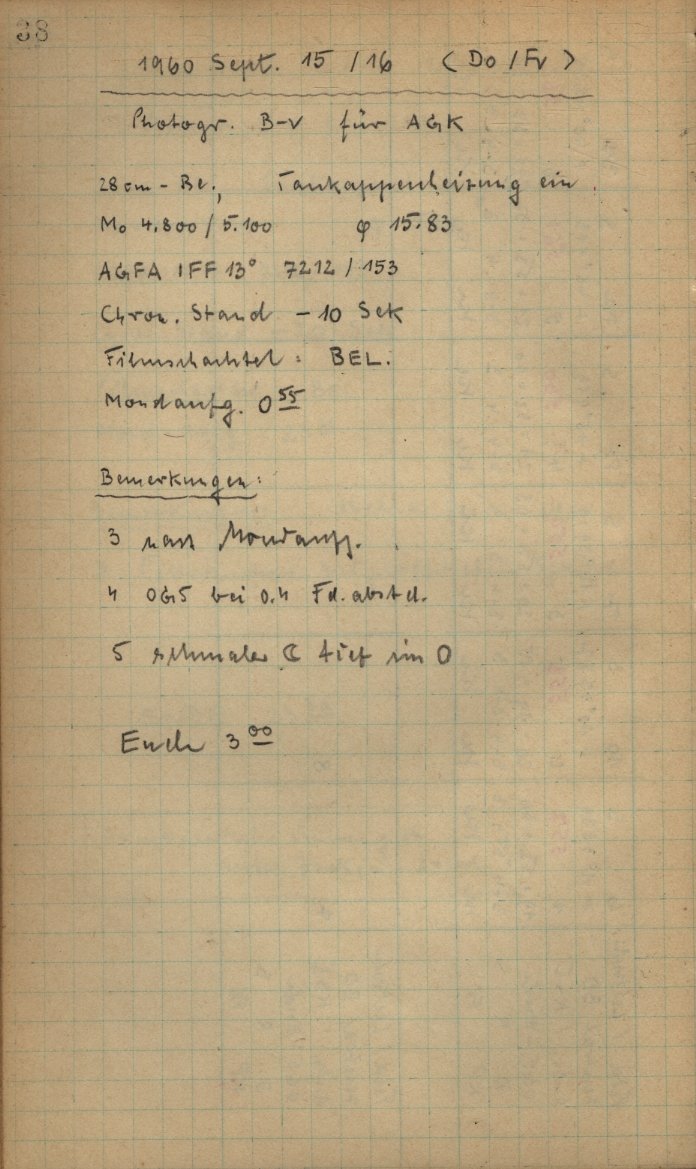 38
1960 Sept. 15 / 16 ( Do / Fr )
Photogr. B-V für AGK
28 cm - Be., Taukappenheizung ein.
Mo 4.800 / 5.100 φ 15.83
AGFA IFF 13° 7212 / 153
Chron. Stand - 10 Sek
Filmschachtel : BEL.
Mondaufg. 0 55
Bemerkungen :
3 nach Mondaufg.
4 OG5 bei 0.4 Fd. abstd.
5 schmaler ☾ tief im O
Ende 3 00